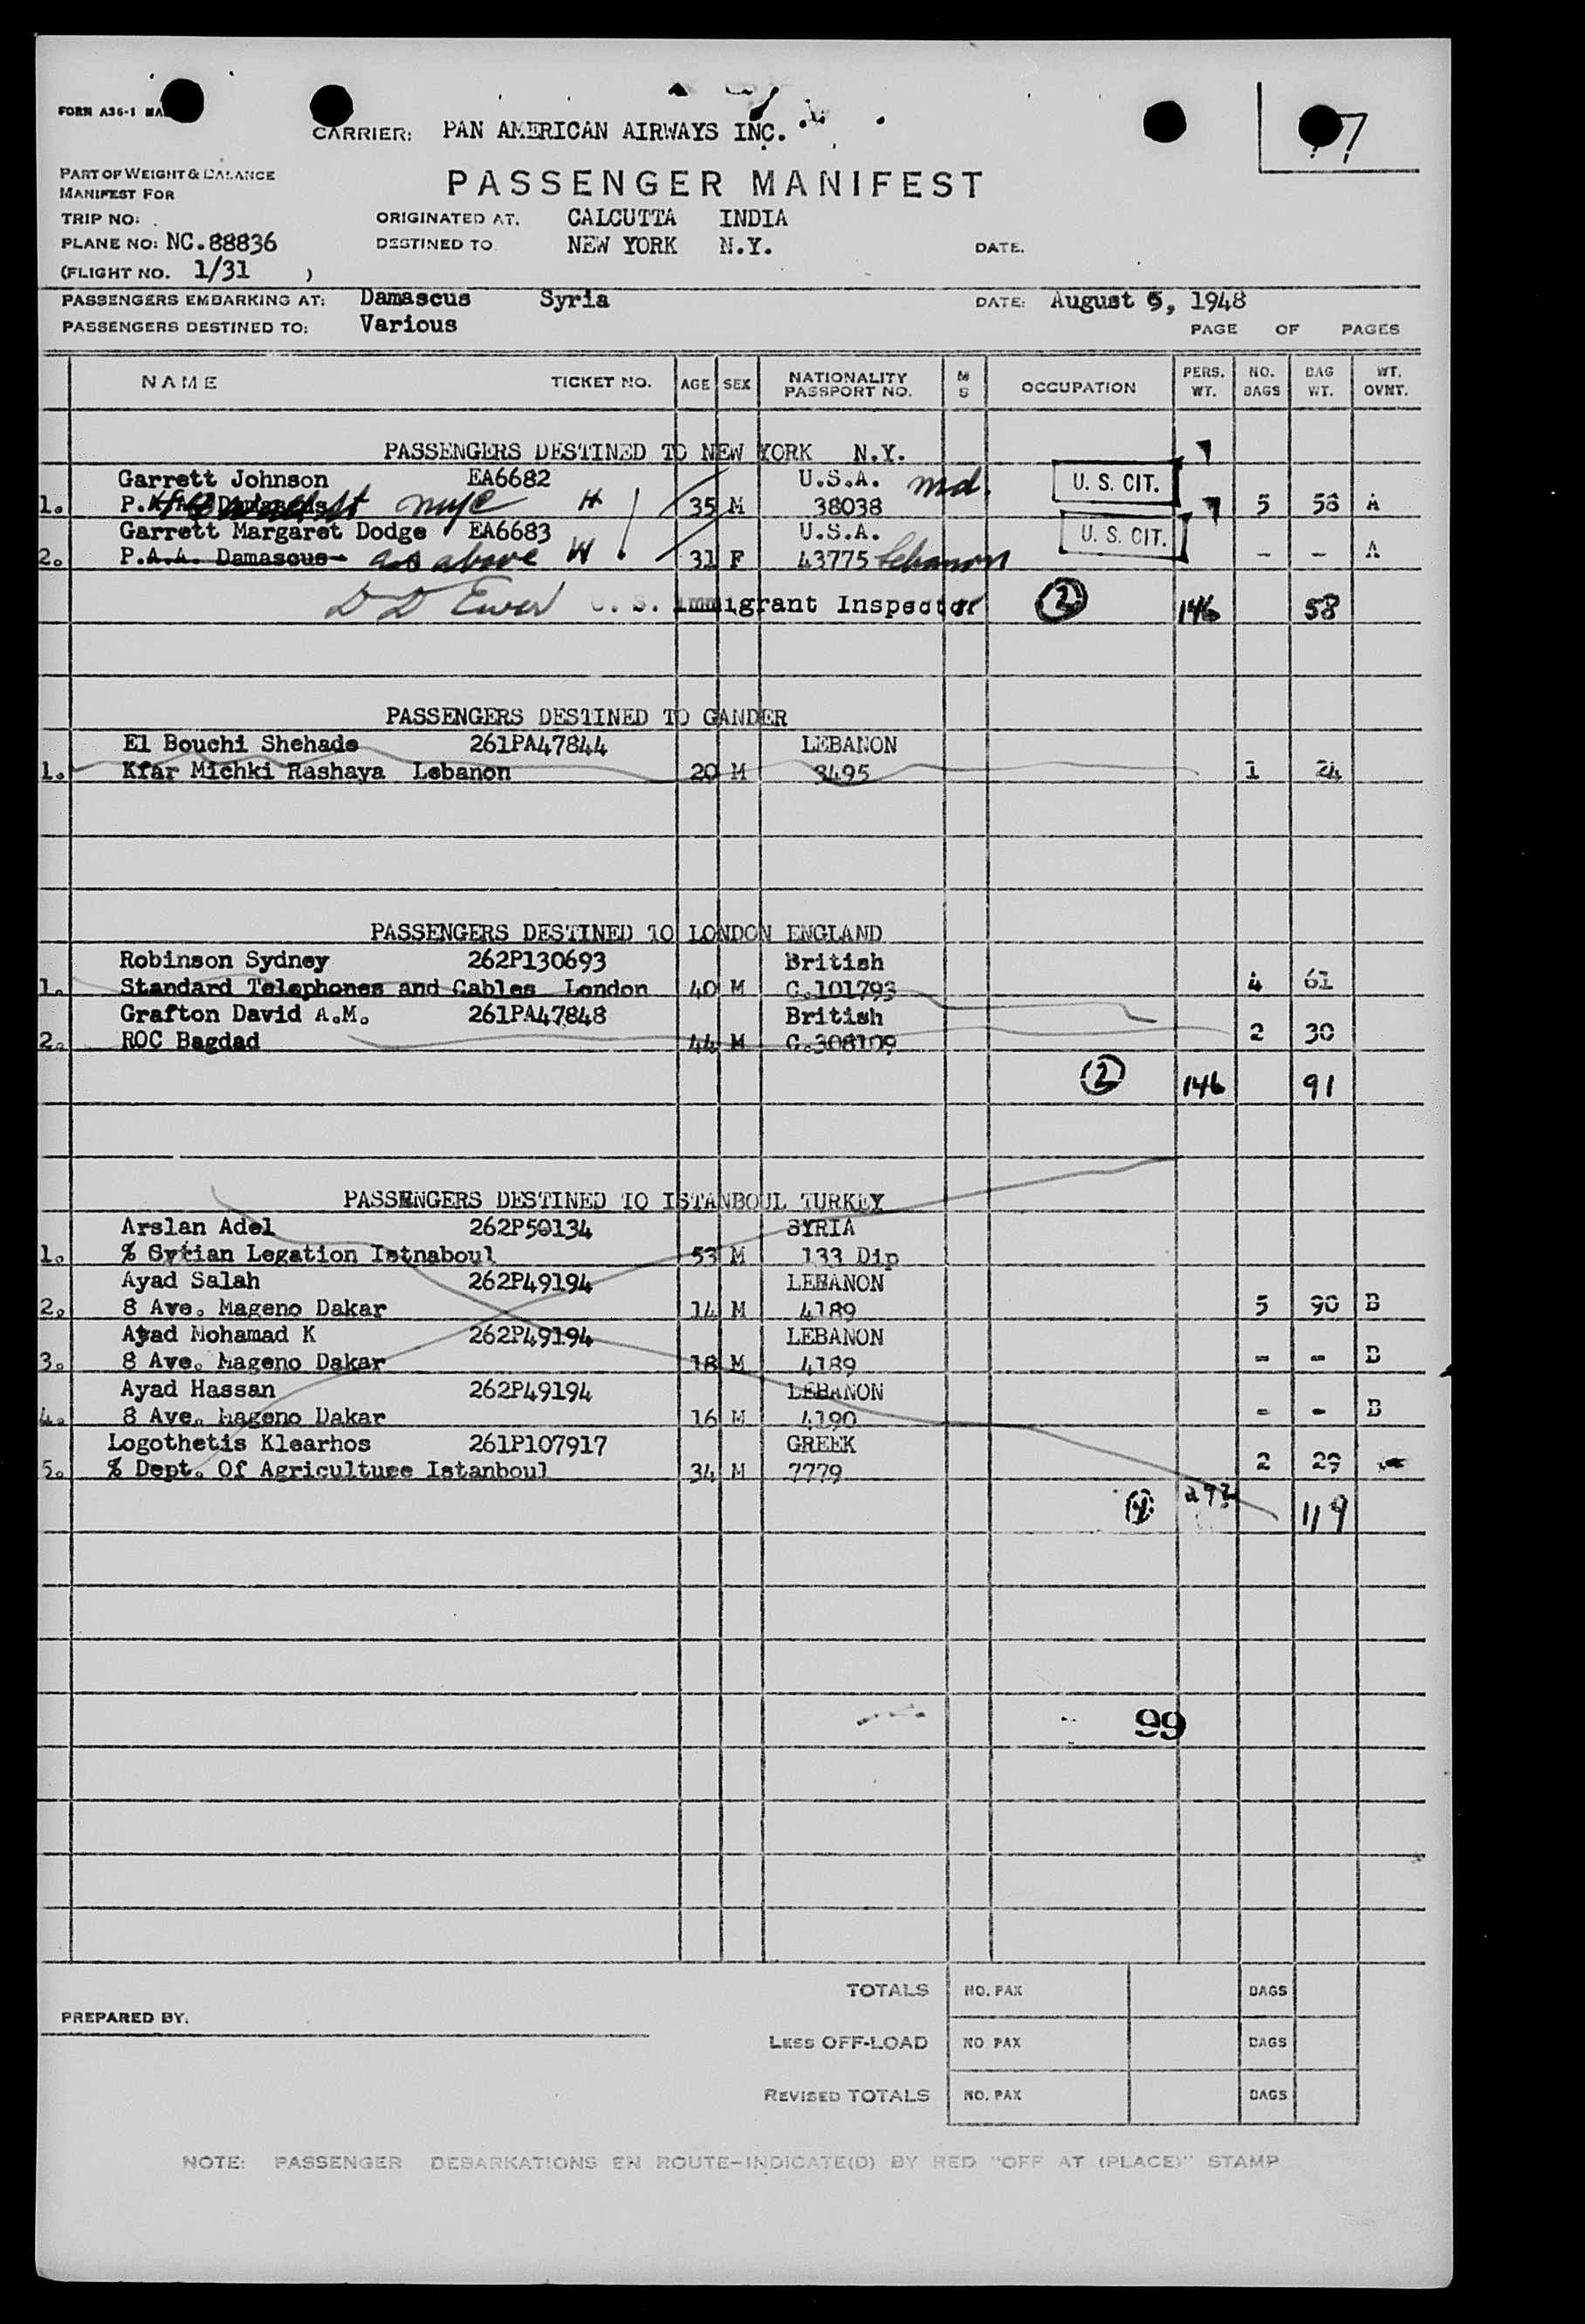 FORM A36-1
CARRIER: PAN AMERICAN AIRWAYS INC.
PART OF WEIGHT & BALANCE
MANIFEST FOR
PASSENGER MANIFEST
TRIP NO:
ORIGINATED AT. CALCUTTA INDIA
PLANE NO: NC.88836
DESTINED TO NEW YORK N.Y.
DATE.
(FLIGHT NO. 1/31 )
PASSENGERS EMBARKING AT: Damascus Syria
DATE: August 5, 1948
PASSENGERS DESTINED TO: Various
PAGE OF PAGES
NAME TICKET NO. AGE SEX NATIONALITY PASSPORT NO. M S OCCUPATION PERS. WT. NO. BAGS BAG WT. WT. OVMT.
PASSENGERS DESTINED TO NEW YORK N.Y.
Garrett Johnson EA6682 U.S.A. md. U. S. CIT.
1. P. Damascus nyc H 35 M 38038 5 58 A
Garrett Margaret Dodge EA6683 U.S.A. U. S. CIT.
2. P.A.A. Damascus as above W 31 F 43775 Lebanon - - A
D D Ewer U. S. Immigrant Inspector 2 146 58
PASSENGERS DESTINED TO GANDER
El Bouchi Shehade 261PA47844 LEBANON
1. Kfar Michki Rashaya Lebanon 20 M 3495 1 24
PASSENGERS DESTINED TO LONDON ENGLAND
Robinson Sydney 262P130693 British
1. Standard Telephones and Cables London 40 M C.101793 4 61
Grafton David A.M. 261PA47848 British
2. ROC Bagdad 44 M C.308109 2 30
2 146 91
PASSENGERS DESTINED TO ISTANBOUL TURKEY
Arslan Adel 262P50134 SYRIA
1. % Syrian Legation Istnaboul 53 M 133 Dip
Ayad Salah 262P49194 LEBANON
2. 8 Ave. Mageno Dakar 14 M 4189 5 90 B
Ayad Mohamad K 262P49194 LEBANON
3. 8 Ave. Mageno Dakar 18 M 4189 - - B
Ayad Hassan 262P49194 LEBANON
4. 8 Ave. Mageno Dakar 16 M 4190 - - B
Logothetis Klearhos 261P107917 GREEK
5. % Dept. Of Agriculture Istanboul 34 M 7779 2 29
292 119
99
TOTALS NO. PAX BAGS
PREPARED BY.
LESS OFF-LOAD NO PAX BAGS
REVISED TOTALS NO. PAX BAGS
NOTE: PASSENGER DEBARKATIONS EN ROUTE-INDICATE(D) BY RED "OFF AT (PLACE)" STAMP